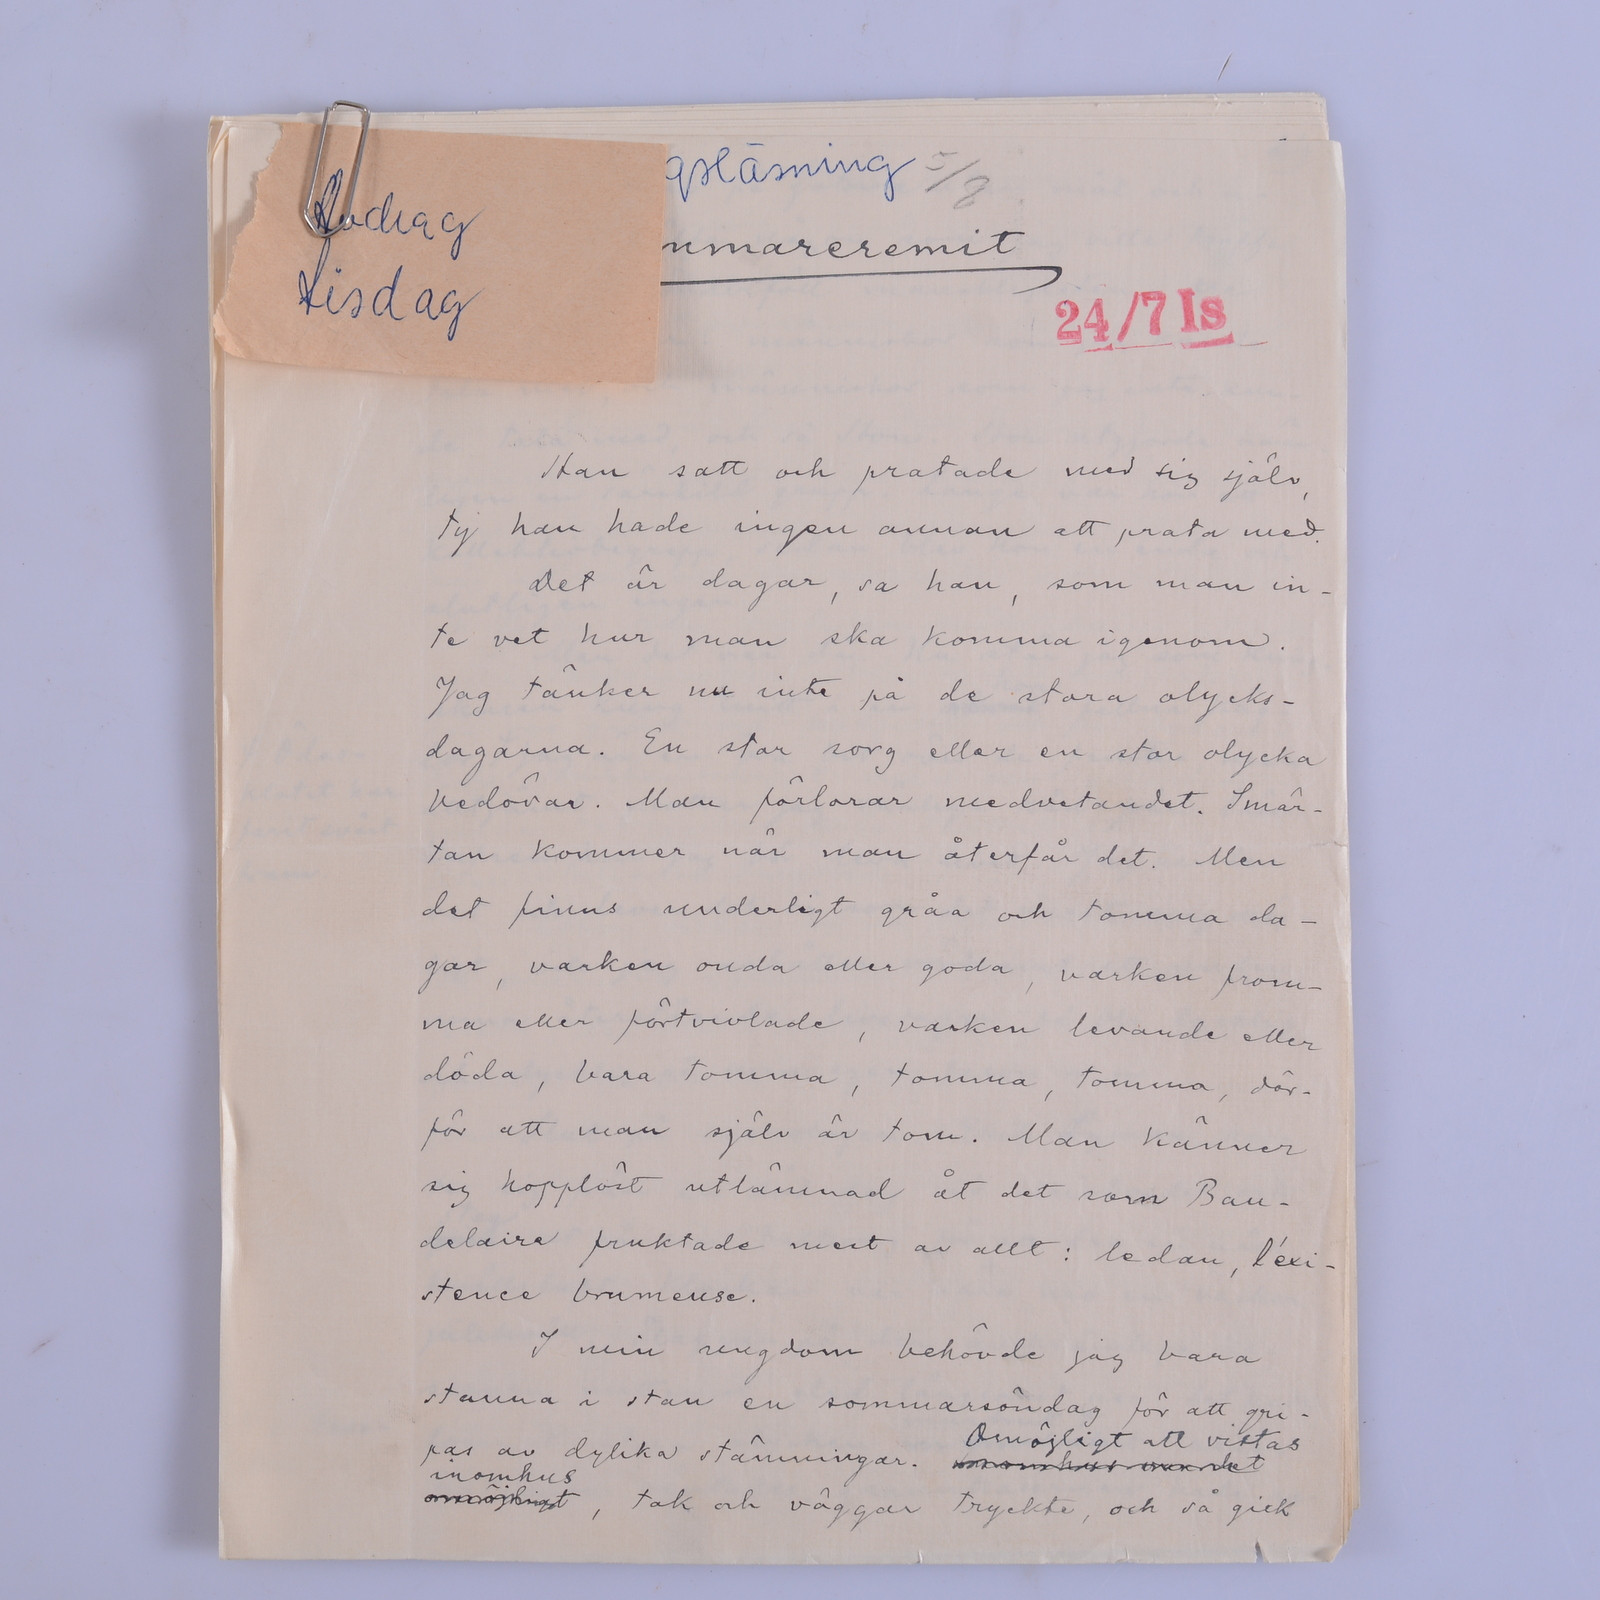 gsläsning 5/8
mmareremit
Andrag
tisdag
24/7 Is
Han satt och pratade med sig själv,
ty han hade ingen annan att prata med.
Det är dagar, sa han, som man in-
te vet hur man ska komma igenom.
Jag tänker nu inte på de stora olycks-
dagarna. En stor sorg eller en stor olycka
bedövar. Man förlorar medvetandet. Smär-
tan kommer när man återfår det. Men
det finns underligt gråa och tomma da-
gar, varken onda eller goda, varken from-
ma eller förtvivlade, varken levande eller
döda, bara tomma, tomma, tomma, där-
för att man själv är tom. Man känner
sig hopplöst utlämnad åt det som Bau-
delaire fruktade mest av allt: ledan, l'exi-
stence brumeuse.
I min ungdom behövde jag bara
stanna i stan en sommarsöndag för att gri-
pas av dylika stämningar. Omöjligt att vistas
inomhus
, tak och väggar tryckte, och så gick